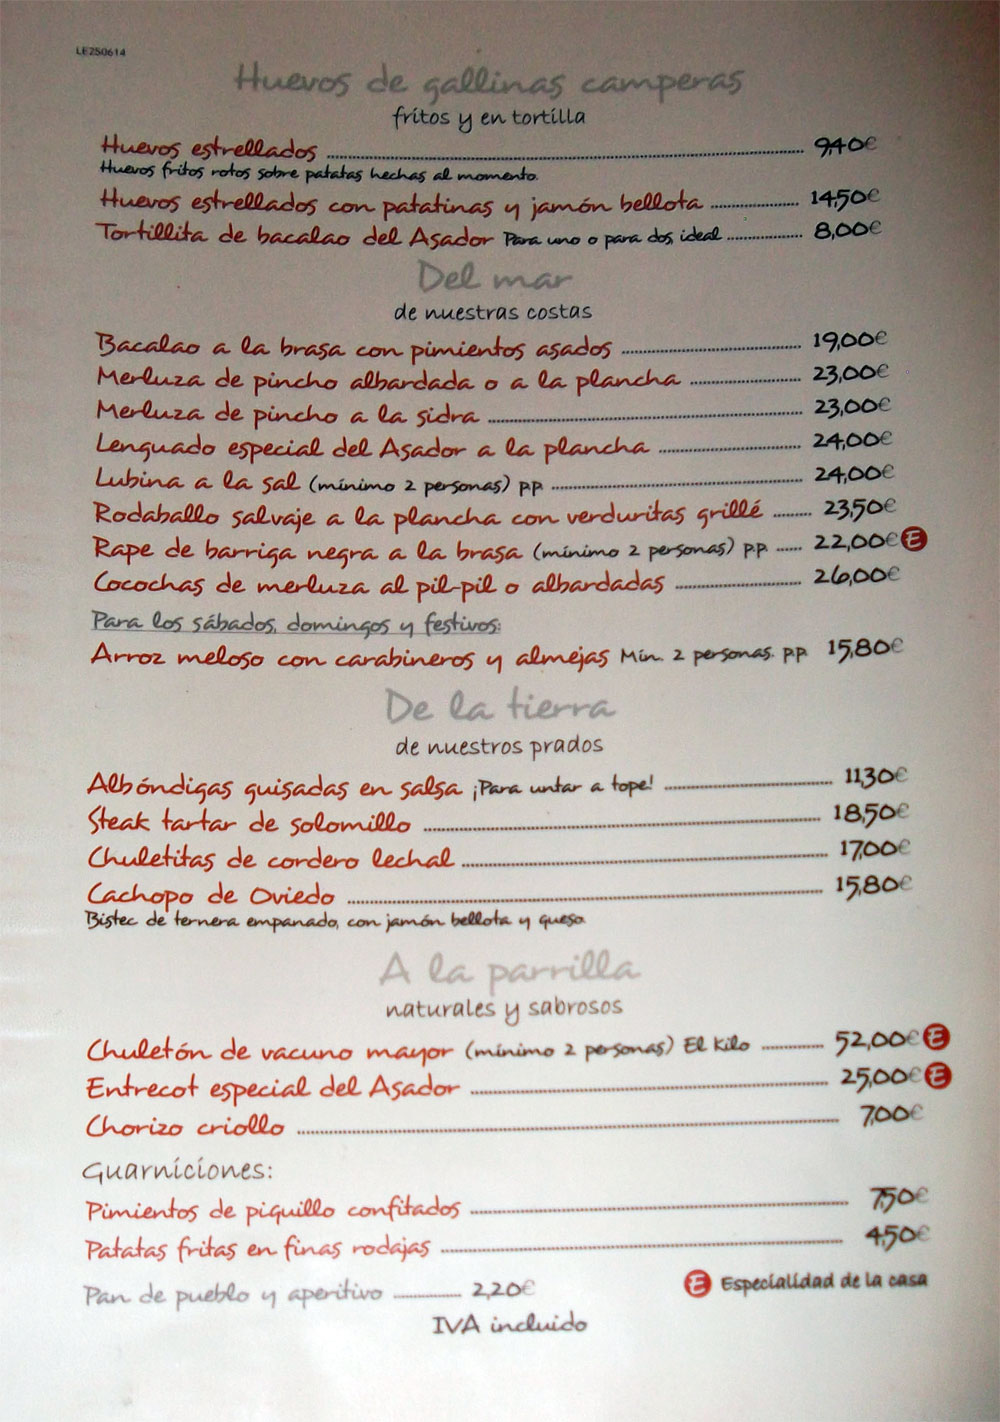 LE250614
Huevos de gallinas camperas
fritos y en tortilla
Huevos estrellados ........ 9,40€
Huevos fritos rotos sobre patatas hechas al momento.
Huevos estrellados con patatinas y jamón bellota ........ 14,50€
Tortillita de bacalao del Asador Para uno o para dos, ideal ........ 8,00€
Del mar
de nuestras costas
Bacalao a la brasa con pimientos asados ........ 19,00€
Merluza de pincho albardada o a la plancha ........ 23,00€
Merluza de pincho a la sidra ........ 23,00€
Lenguado especial del Asador a la plancha ........ 24,00€
Lubina a la sal (mínimo 2 personas) p.p. ........ 24,00€
Rodaballo salvaje a la plancha con verduritas grillé ........ 23,50€
Rape de barriga negra a la brasa (mínimo 2 personas) p.p. ...... 22,00€ E
Cocochas de merluza al pil-pil o albardadas ........ 26,00€
Para los sábados, domingos y festivos:
Arroz meloso con carabineros y almejas Mín. 2 personas. p.p. 15,80€
De la tierra
de nuestros prados
Albóndigas guisadas en salsa ¡Para untar a tope! ........ 11,30€
Steak tartar de solomillo ........ 18,50€
Chuletitas de cordero lechal ........ 17,00€
Cachopo de Oviedo ........ 15,80€
Bistec de ternera empanado, con jamón bellota y queso.
A la parrilla
naturales y sabrosos
Chuletón de vacuno mayor (mínimo 2 personas) El Kilo ........ 52,00€ E
Entrecot especial del Asador ........ 25,00€ E
Chorizo criollo ........ 7,00€
Guarniciones:
Pimientos de piquillo confitados ........ 7,50€
Patatas fritas en finas rodajas ........ 4,50€
Pan de pueblo y aperitivo ........ 2,20€
E Especialidad de la casa
IVA incluido